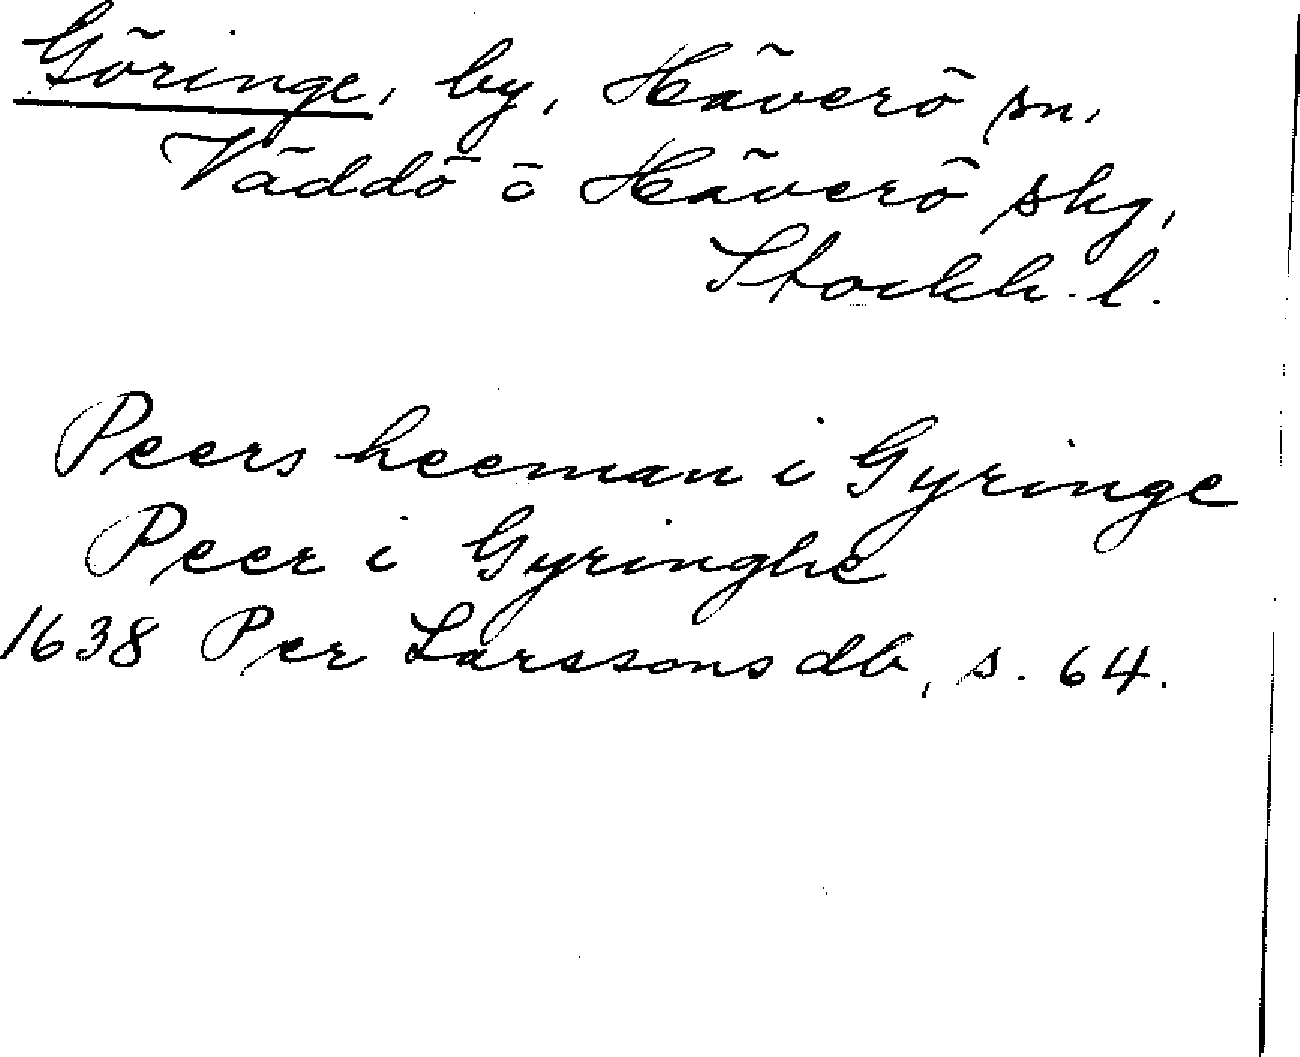 Göringe, by, Häverö sn,
Väddö o Häverö skg,
Stockh. l.
Peers heeman i Gyringe
Peer i Gyringhe
1638 Per Larssons db, s. 64.